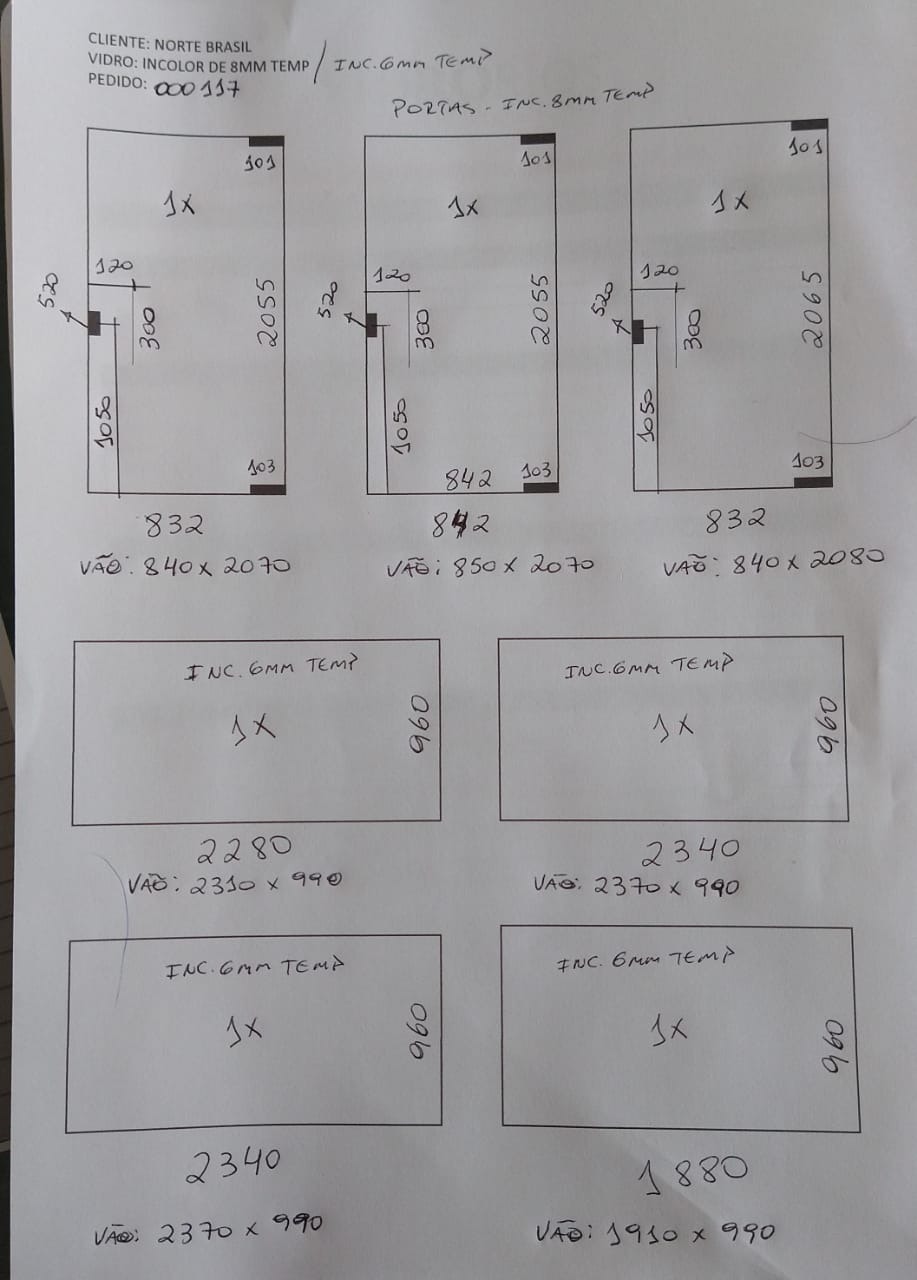 CLIENTE: NORTE BRASIL
VIDRO: INCOLOR DE 8MM TEMP / INC. 6mm TEMP
PEDIDO: 000117
PORTAS - INC. 8mm TEMP
101
1x
120
520
300
2055
1050
103
832
VÃO: 840 x 2070
101
1x
120
520
300
2055
1050
842
103
842
VÃO: 850 x 2070
101
1x
120
520
300
2065
1050
103
832
VÃO: 840 x 2080
INC. 6MM TEMP
1x
960
2280
VÃO: 2310 x 990
INC. 6MM TEMP
1x
960
2340
VÃO: 2370 x 990
INC. 6mm TEMP
1x
960
2340
VÃO: 2370 x 990
INC. 6MM TEMP
1x
960
1880
VÃO: 1910 x 990